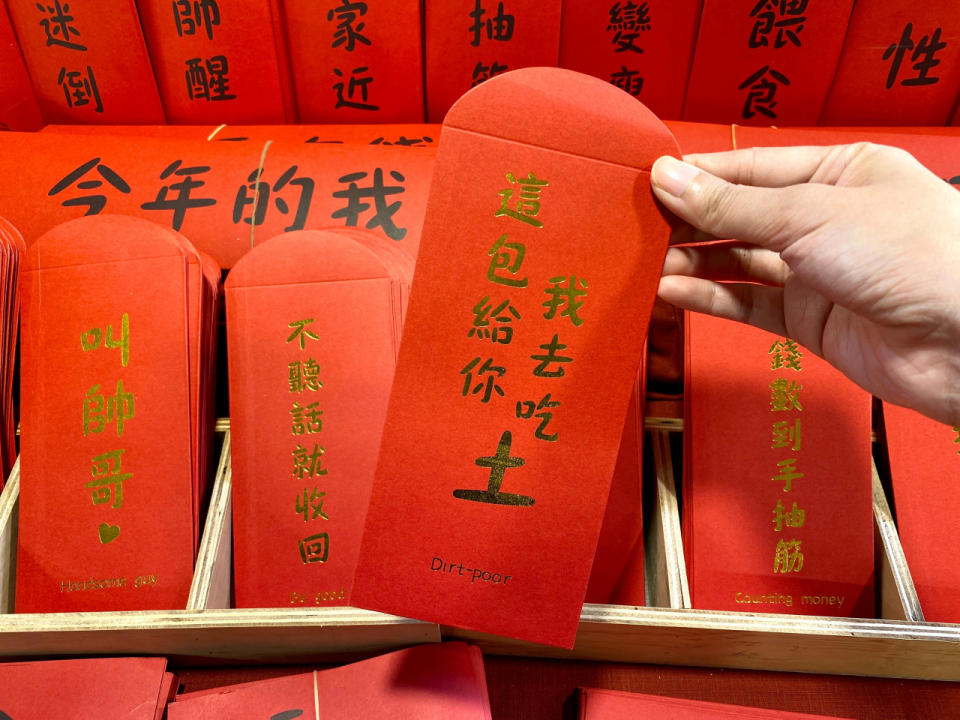 迷倒
帥醒
家近
抽筋
變
餵食
性
今年的我
叫帥哥
Handsome guy
不聽話就收回
Be good
這包給你
我去吃
土
Dirt-poor
錢數到手抽筋
Counting money